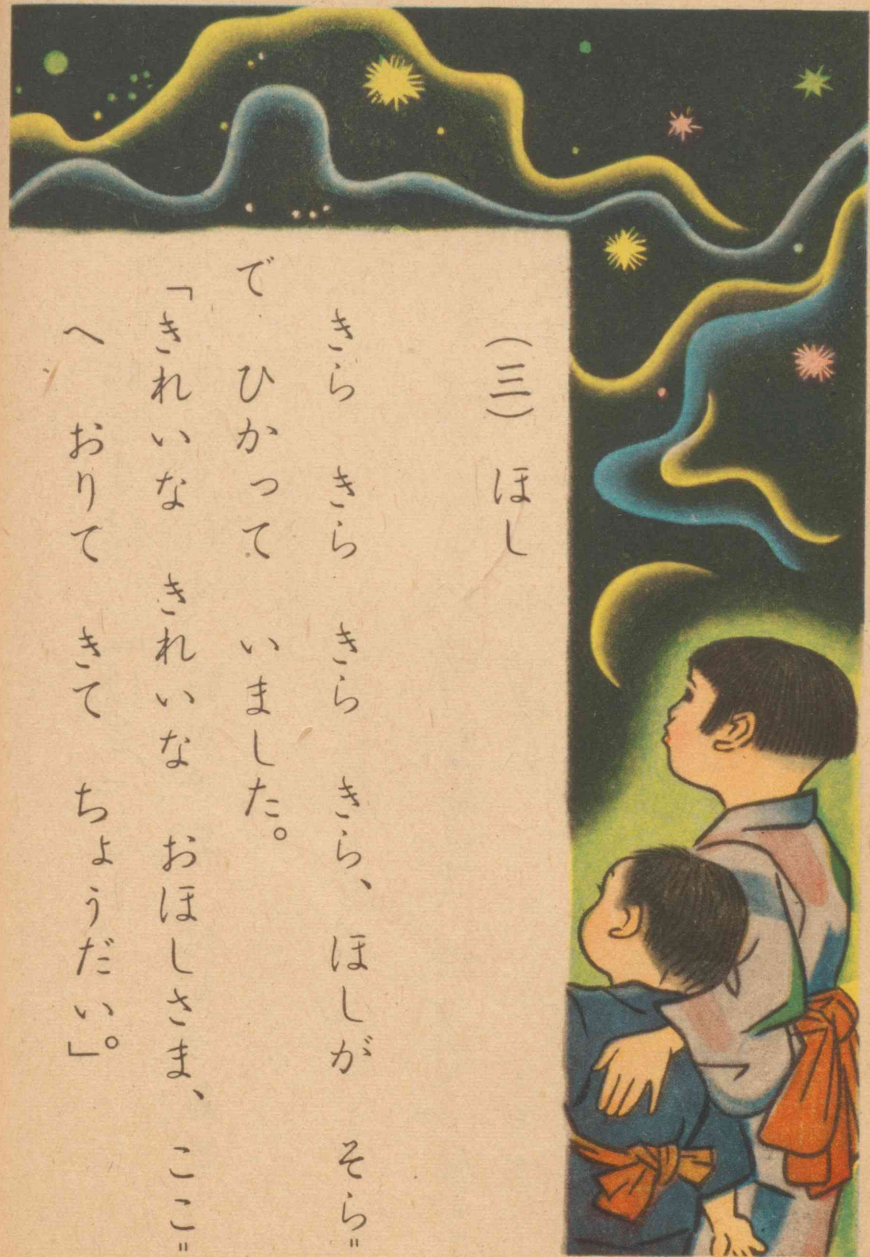 (三) ほし
きら きら きら きら、ほしが そら〃
で ひかって いました。
「きれいな きれいな おほしさま、ここ〃
へ おりて きて ちょうだい。」